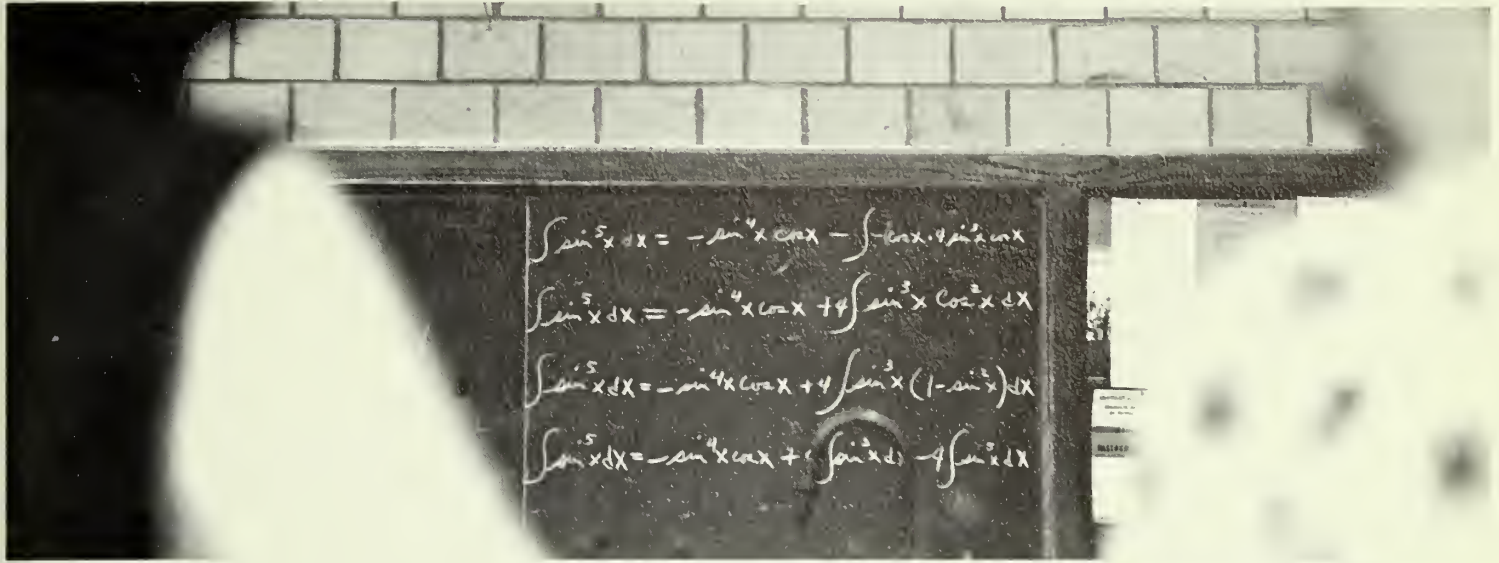 ∫sin⁵x dx = -sin⁴x cosx - ∫-cosx·4sin³x cosx
∫sin⁵x dx = -sin⁴x cosx + 4∫sin³x cos²x dx
∫sin⁵x dx = -sin⁴x cosx + 4∫sin³x (1-sin²x)dx
∫sin⁵x dx = -sin⁴x cosx + ∫sin³x d - 4∫sin⁵x dx